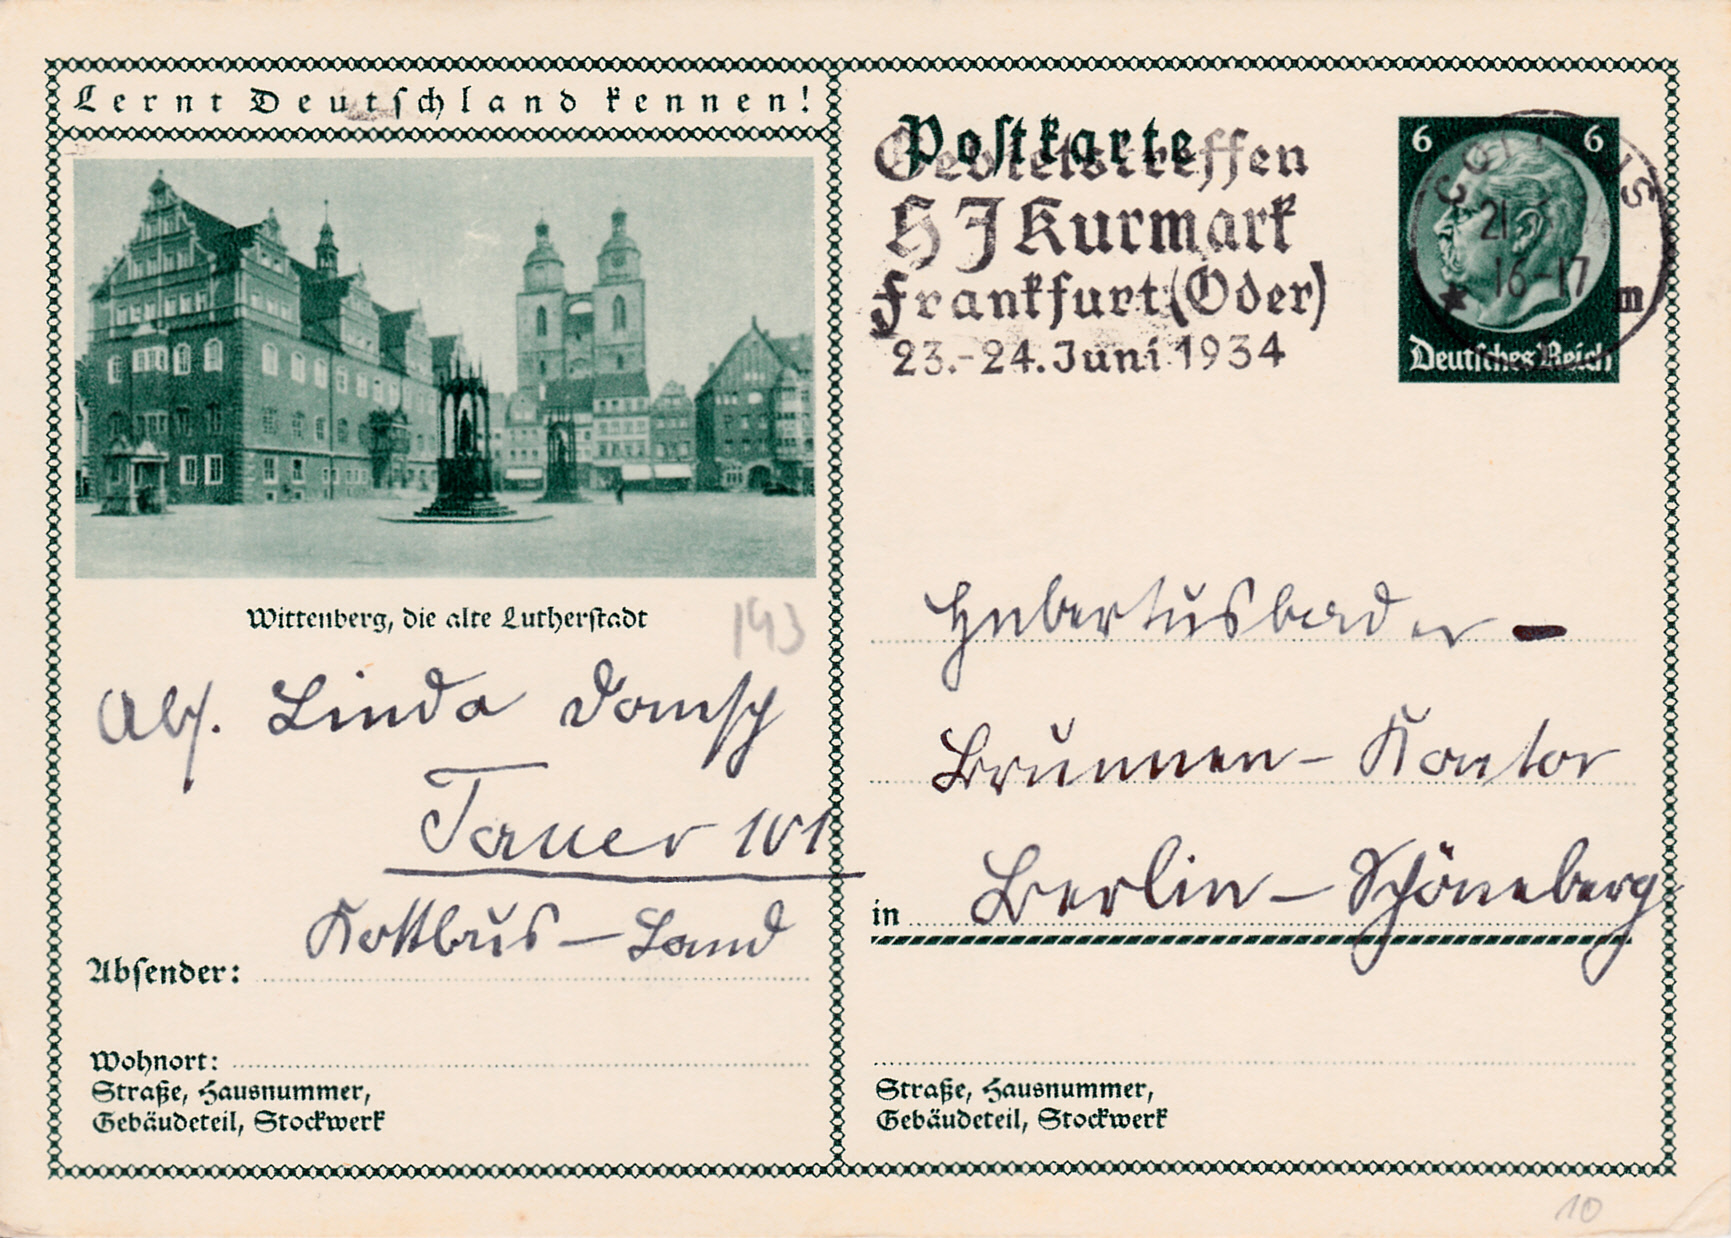 Lernt Deutschland kennen!
Wittenberg, die alte Lutherstadt
193
Abs. Linda Domsch
Tauer 101
Kottbus – Land
Absender:
Wohnort:
Straße, Hausnummer,
Gebäudeteil, Stockwerk
Postkarte
Gebietstreffen
HJ Kurmark
Frankfurt (Oder)
23.-24. Juni 1934
6 6
21
16-17
m
Deutsches Reich
Hubertusbader –
Brunnen – Kontor
in Berlin – Schöneberg
Straße, Hausnummer,
Gebäudeteil, Stockwerk
10